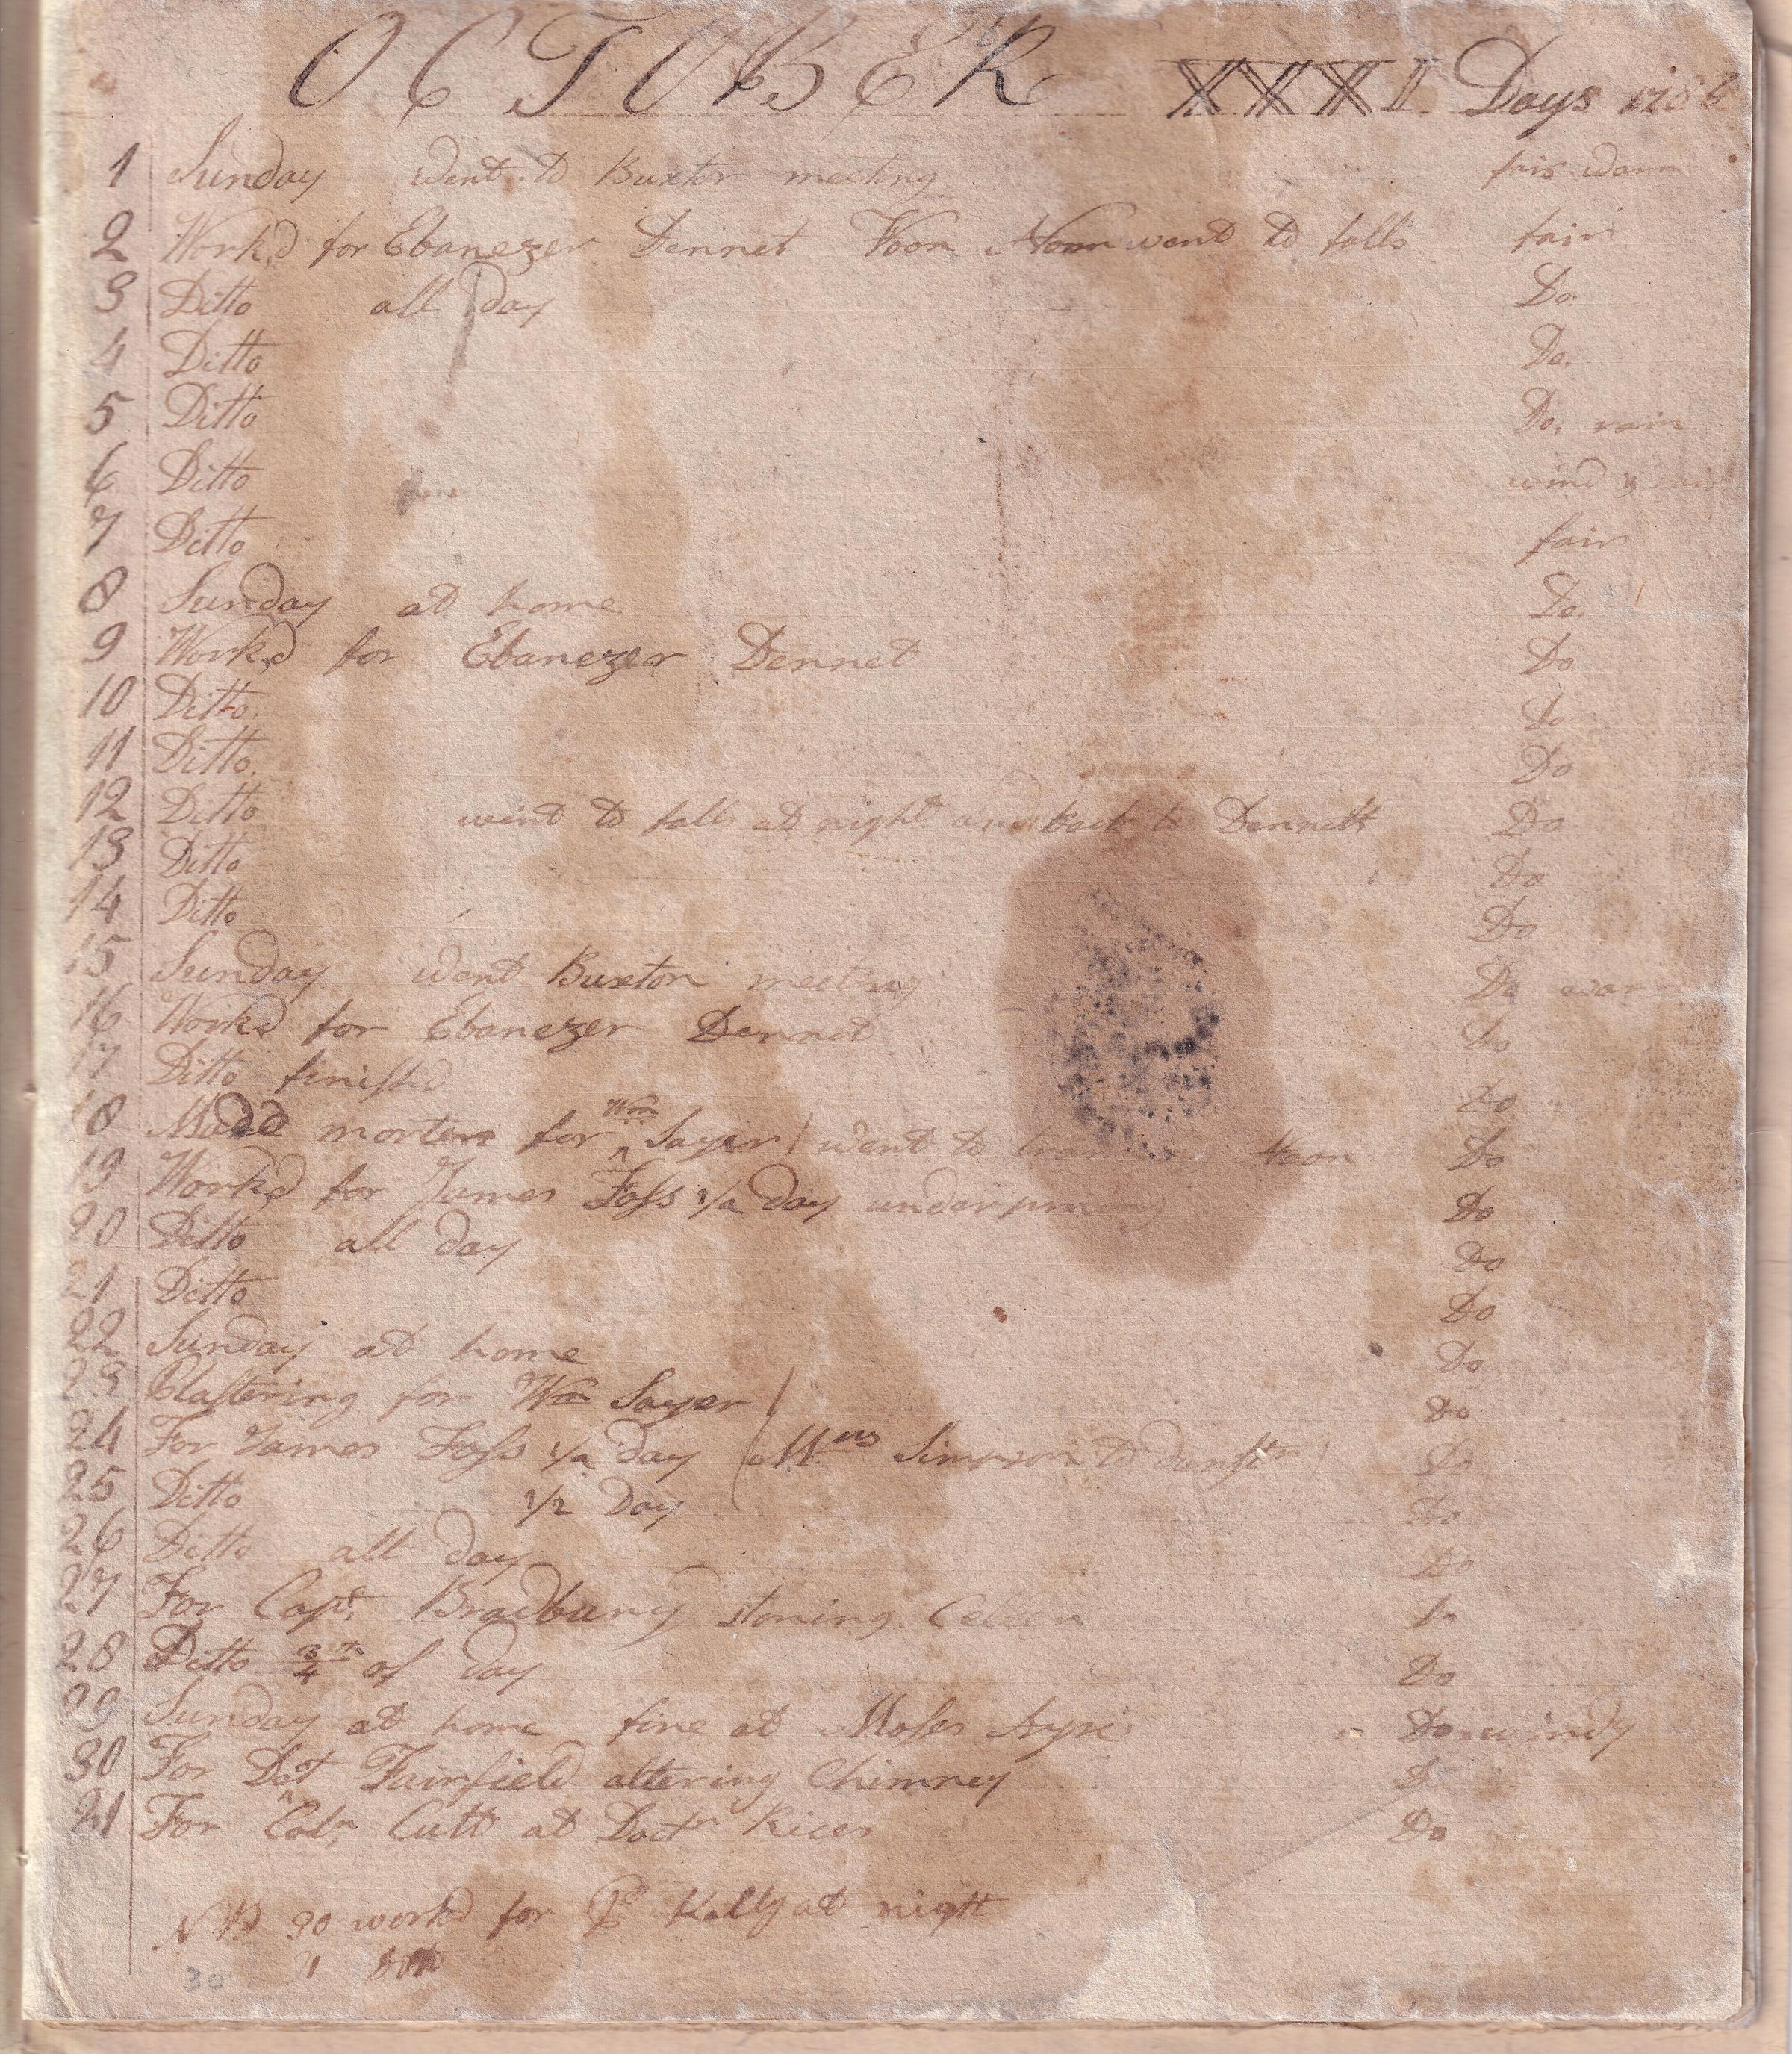 OCTOBER XXXI Days 1786
1 Sunday went to Buxton meeting fair warm
2 Work,d for Ebanezer Dennet Foor Noon went to falls fair
3 Ditto all day Do
4 Ditto Do.
5 Ditto Do, rain
6 Ditto wind & rain
7 Ditto fair
8 Sunday at home Do.
9 Work,d for Ebanezer Dennet Do
10 Ditto Do
11 Ditto Do
12 Ditto went to falls at night and back to Dennetts Do
13 Ditto Do
14 Ditto Do
15 Sunday went Buxton meeting Do warm
16 Work,d for Ebanezer Dennet Do
17 Ditto finishd Do
18 Made morter for Wm Sayer / went to training Noon Do
19 Work,d for James Foss 1/2 day underpining Do
20 Ditto all day Do
21 Ditto Do
22 Sunday at home Do
23 Plastering for Wm Sayer Do
24 For James Foss 1/2 day Simpson to Do
25 Ditto 1/2 Day Do
26 Ditto all day Do
27 For Capt. Bradbury stoning Celler Do
28 Ditto 3/4 of day Do
29 Sunday at home fire at Moses Ayre Do windy
30 For Doct Fairfield altering Chimney D
31 For Coln. Cutt at Doctr Rices Do
NB 30 workd for Kelly at night
31
30